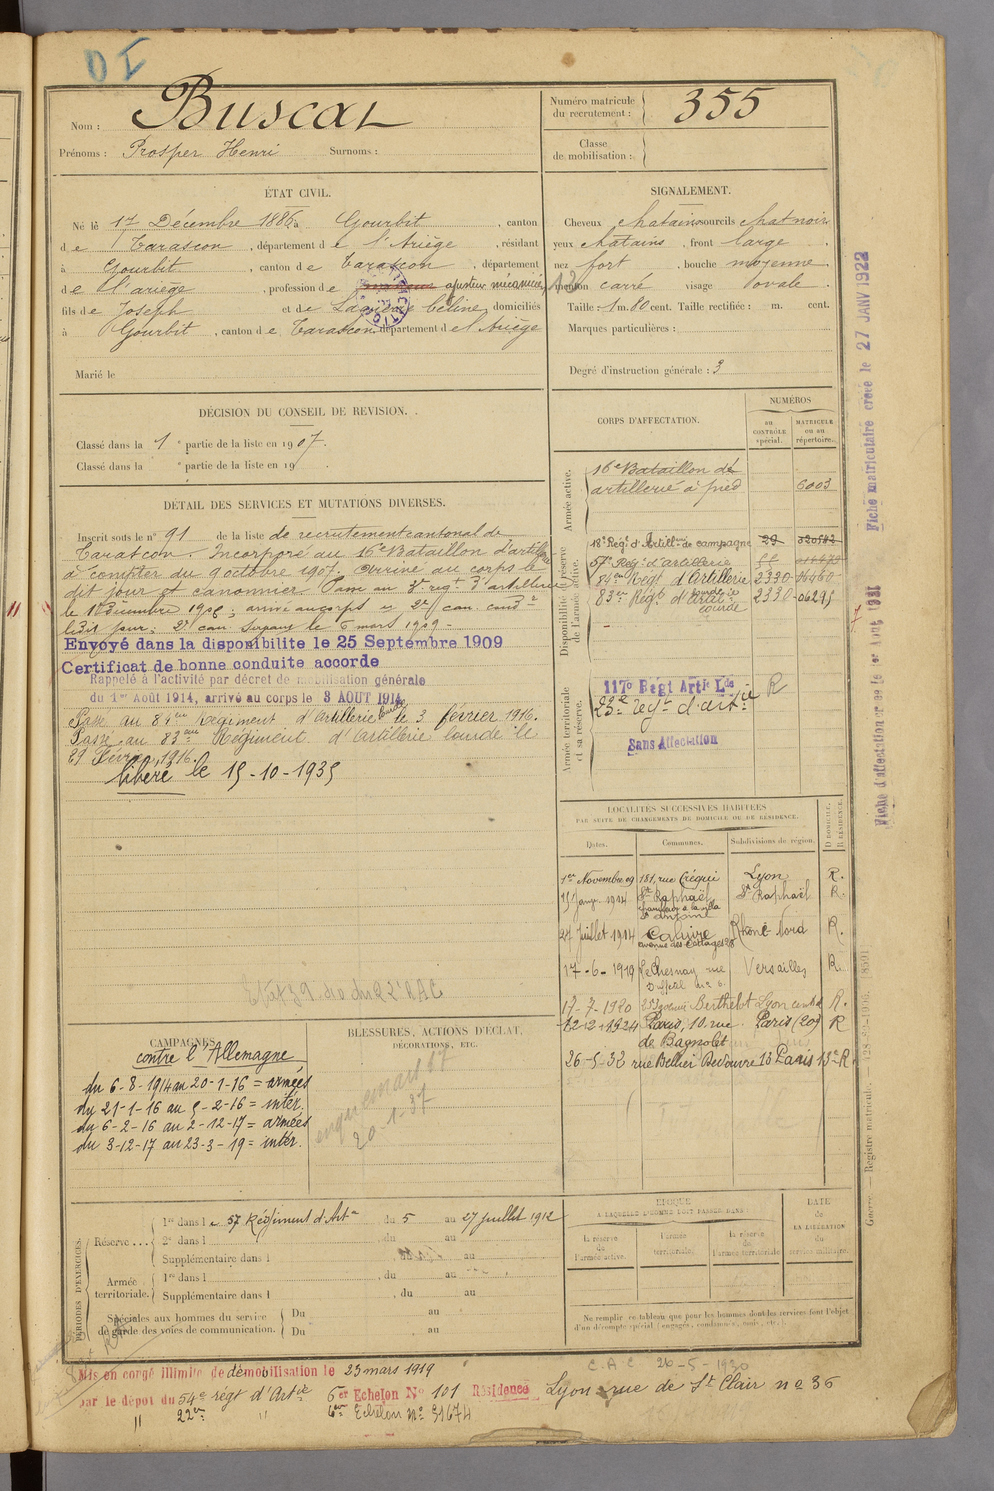 Nom : Buscal
Prénoms : Prosper Henri Surnoms :
Numéro matricule du recrutement : 355
Classe de mobilisation :
ÉTAT CIVIL.
Né le 17 Décembre 1886 à Gourbit, canton
de Tarascon, département de l'Ariège, résidant
à Gourbit, canton de Tarascon, département
de l'ariège, profession de ajusteur mécanicien
fils de Joseph et de domiciliés
à Gourbit, canton de Tarascon, département de l'Ariège
Marié le
SIGNALEMENT.
Cheveux chatains sourcils chat noir
yeux chatains, front large
nez fort, bouche moyenne
menton carré visage ovale
Taille : 1 m. 80 cent. Taille rectifiée : m. cent.
Marques particulières :
Degré d'instruction générale : 3
DÉCISION DU CONSEIL DE REVISION.
Classé dans la 1e partie de la liste en 1907.
Classé dans la e partie de la liste en 19 .
DÉTAIL DES SERVICES ET MUTATIONS DIVERSES.
Inscrit sous le n° 91 de la liste de recrutement cantonal de
Tarascon. Incorporé au 16e Bataillon d'artillerie
à compter du 9 octobre 1907. Arrivé au corps le
dit jour et canonnier. Passé au 3e regt d'artillerie
le 1er Décembre 1908; arrivé au corps et 2e can. cond.
ledit jour; le 6 mars 1909.
Envoyé dans la disponibilité le 25 Septembre 1909
Certificat de bonne conduite accordé
Rappelé à l'activité par décret de mobilisation générale
du 1er Août 1914, arrivé au corps le 3 AOUT 1914
Passé au 84eme Régiment d'Artillerie lourde le 3 février 1916.
Passé au 83eme Régiment d'Artillerie lourde le
29 Février 1916.
libéré le 15-10-1935
CORPS D'AFFECTATION.
NUMÉROS
au CONTRÔLE spécial.
MATRICULE ou au répertoire.
Armée active.
16e Bataillon de
artillerie à pied 6003
Disponibilité et réserve de l'armée active.
18e Régt d'Artillerie de campagne 29
57e Régt d'artillerie
84eme Régt d'Artillerie 2330
83eme Régt d'Artie lourde 2330 06295
Armée territoriale et sa réserve.
117e Régt Artie Lde R
Sans Affectation
LOCALITÉS SUCCESSIVES HABITÉES
PAR SUITE DE CHANGEMENTS DE DOMICILE OU DE RÉSIDENCE.
Dates. Communes. Subdivisions de région. D DOMICILE. R RÉSIDENCE.
1er Novembre 09 181, rue Créqui Lyon R.
15 Janv. 1914 St Raphaël St Raphaël R.
27 Juillet 1914 Caluire Rhône Nord R.
17-6-1919 Le Chesnay rue Versailles R.
17-7-1920 Berthelot Lyon central R.
12-12-1924 Paris, 10, rue de Bagnolet Paris (20e) R
26-5-32 rue Bellier Dedouvre 13 Paris 13e R
CAMPAGNES.
contre l'Allemagne
du 6-8-1914 au 20-1-16 = armées
du 21-1-16 au 5-2-16 = intér.
du 6-2-16 au 2-12-17 = armées
du 3-12-17 au 23-3-19 = intér.
BLESSURES, ACTIONS D'ÉCLAT,
DÉCORATIONS, ETC.
20-1-37
PÉRIODES D'EXERCICES.
Réserve . . . 1re dans le 57 Régiment d'Artie du 5 au 27 juillet 1912
2e dans l , du au
Supplémentaire dans l du au
Armée territoriale. 1re dans l , du au
Supplémentaire dans l , du au
Spéciales aux hommes du service
de garde des voies de communication. Du au
Du au
ÉPOQUE
À LAQUELLE L'HOMME DOIT PASSER DANS :
la réserve de l'armée active.
l'armée territoriale.
la réserve de l'armée territoriale
DATE de LA LIBÉRATION du service militaire.
Ne remplir ce tableau que pour les hommes dont les services font l'objet
d'un décompte spécial (engagés, condamnés, omis, etc.).
Mis en congé illimité de démobilisation le 23 mars 1919
par le dépôt du 54e régt d'Artie 6er Echelon N° 101 Résidence Lyon rue de St Clair no 36
" 22em " 6em Echelon no 51674
C.A.C 26-5-1930
Fiche matriculaire créée le 27 JANV 1922
Fiche d'affectation créée le 1er Août 1931